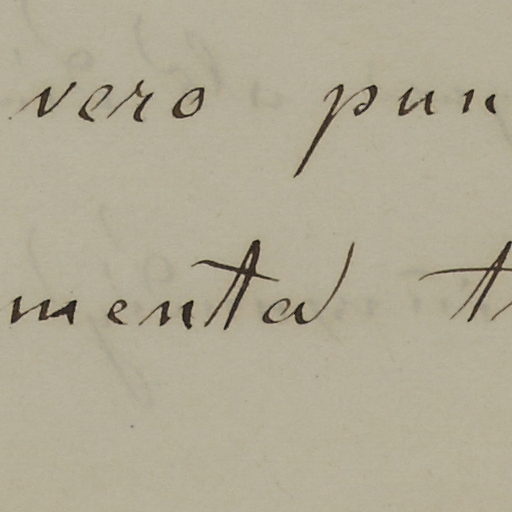 vero pun
menta t